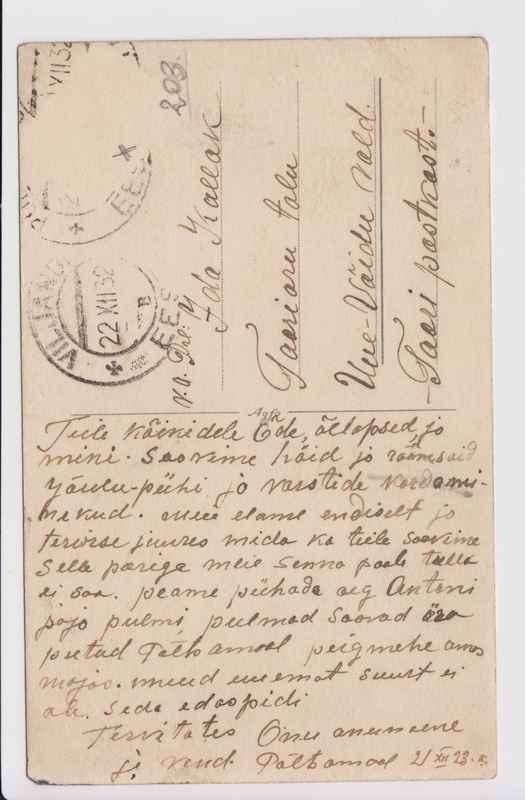 203.
VILJANDI EESTI
22 XII 32
B
XII 32
EES
v. a. Prl: Ida Kallak
Taarioru talu
Uue-Võidu vald.
Taari postkast.-
Agfa
Teile kõikidele Õde, õelapsed jo
mini. Soovime häid jo rõõmsaid
Jõulu-pühi jo
nekud. meie elame endiselt jo
tervise juures mida ka teile soovime
Selle pärige meie Senna poole tulla
ei saa. peame pühade aeg Antoni
pojo pulmi pulmad Saavad ära
peetud Põltsamaal peigmehe
majas. muud uuemat suurt ei
ole. Seda edaspidi
Tervitates Onu
ja vend. Põltsamaal 21 XII 23. a.